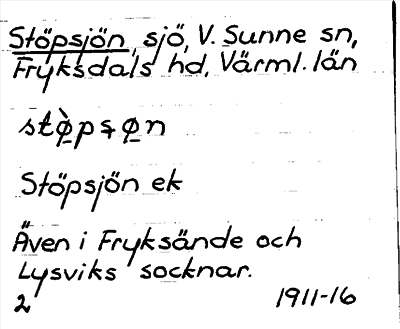 Stöpsjön, sjö, V. Sunne sn,
Fryksdals hd, Värml. län
stø̀pşøn
Stöpsjön ek
Även i Fryksände och
Lysviks socknar.
2 1911-16